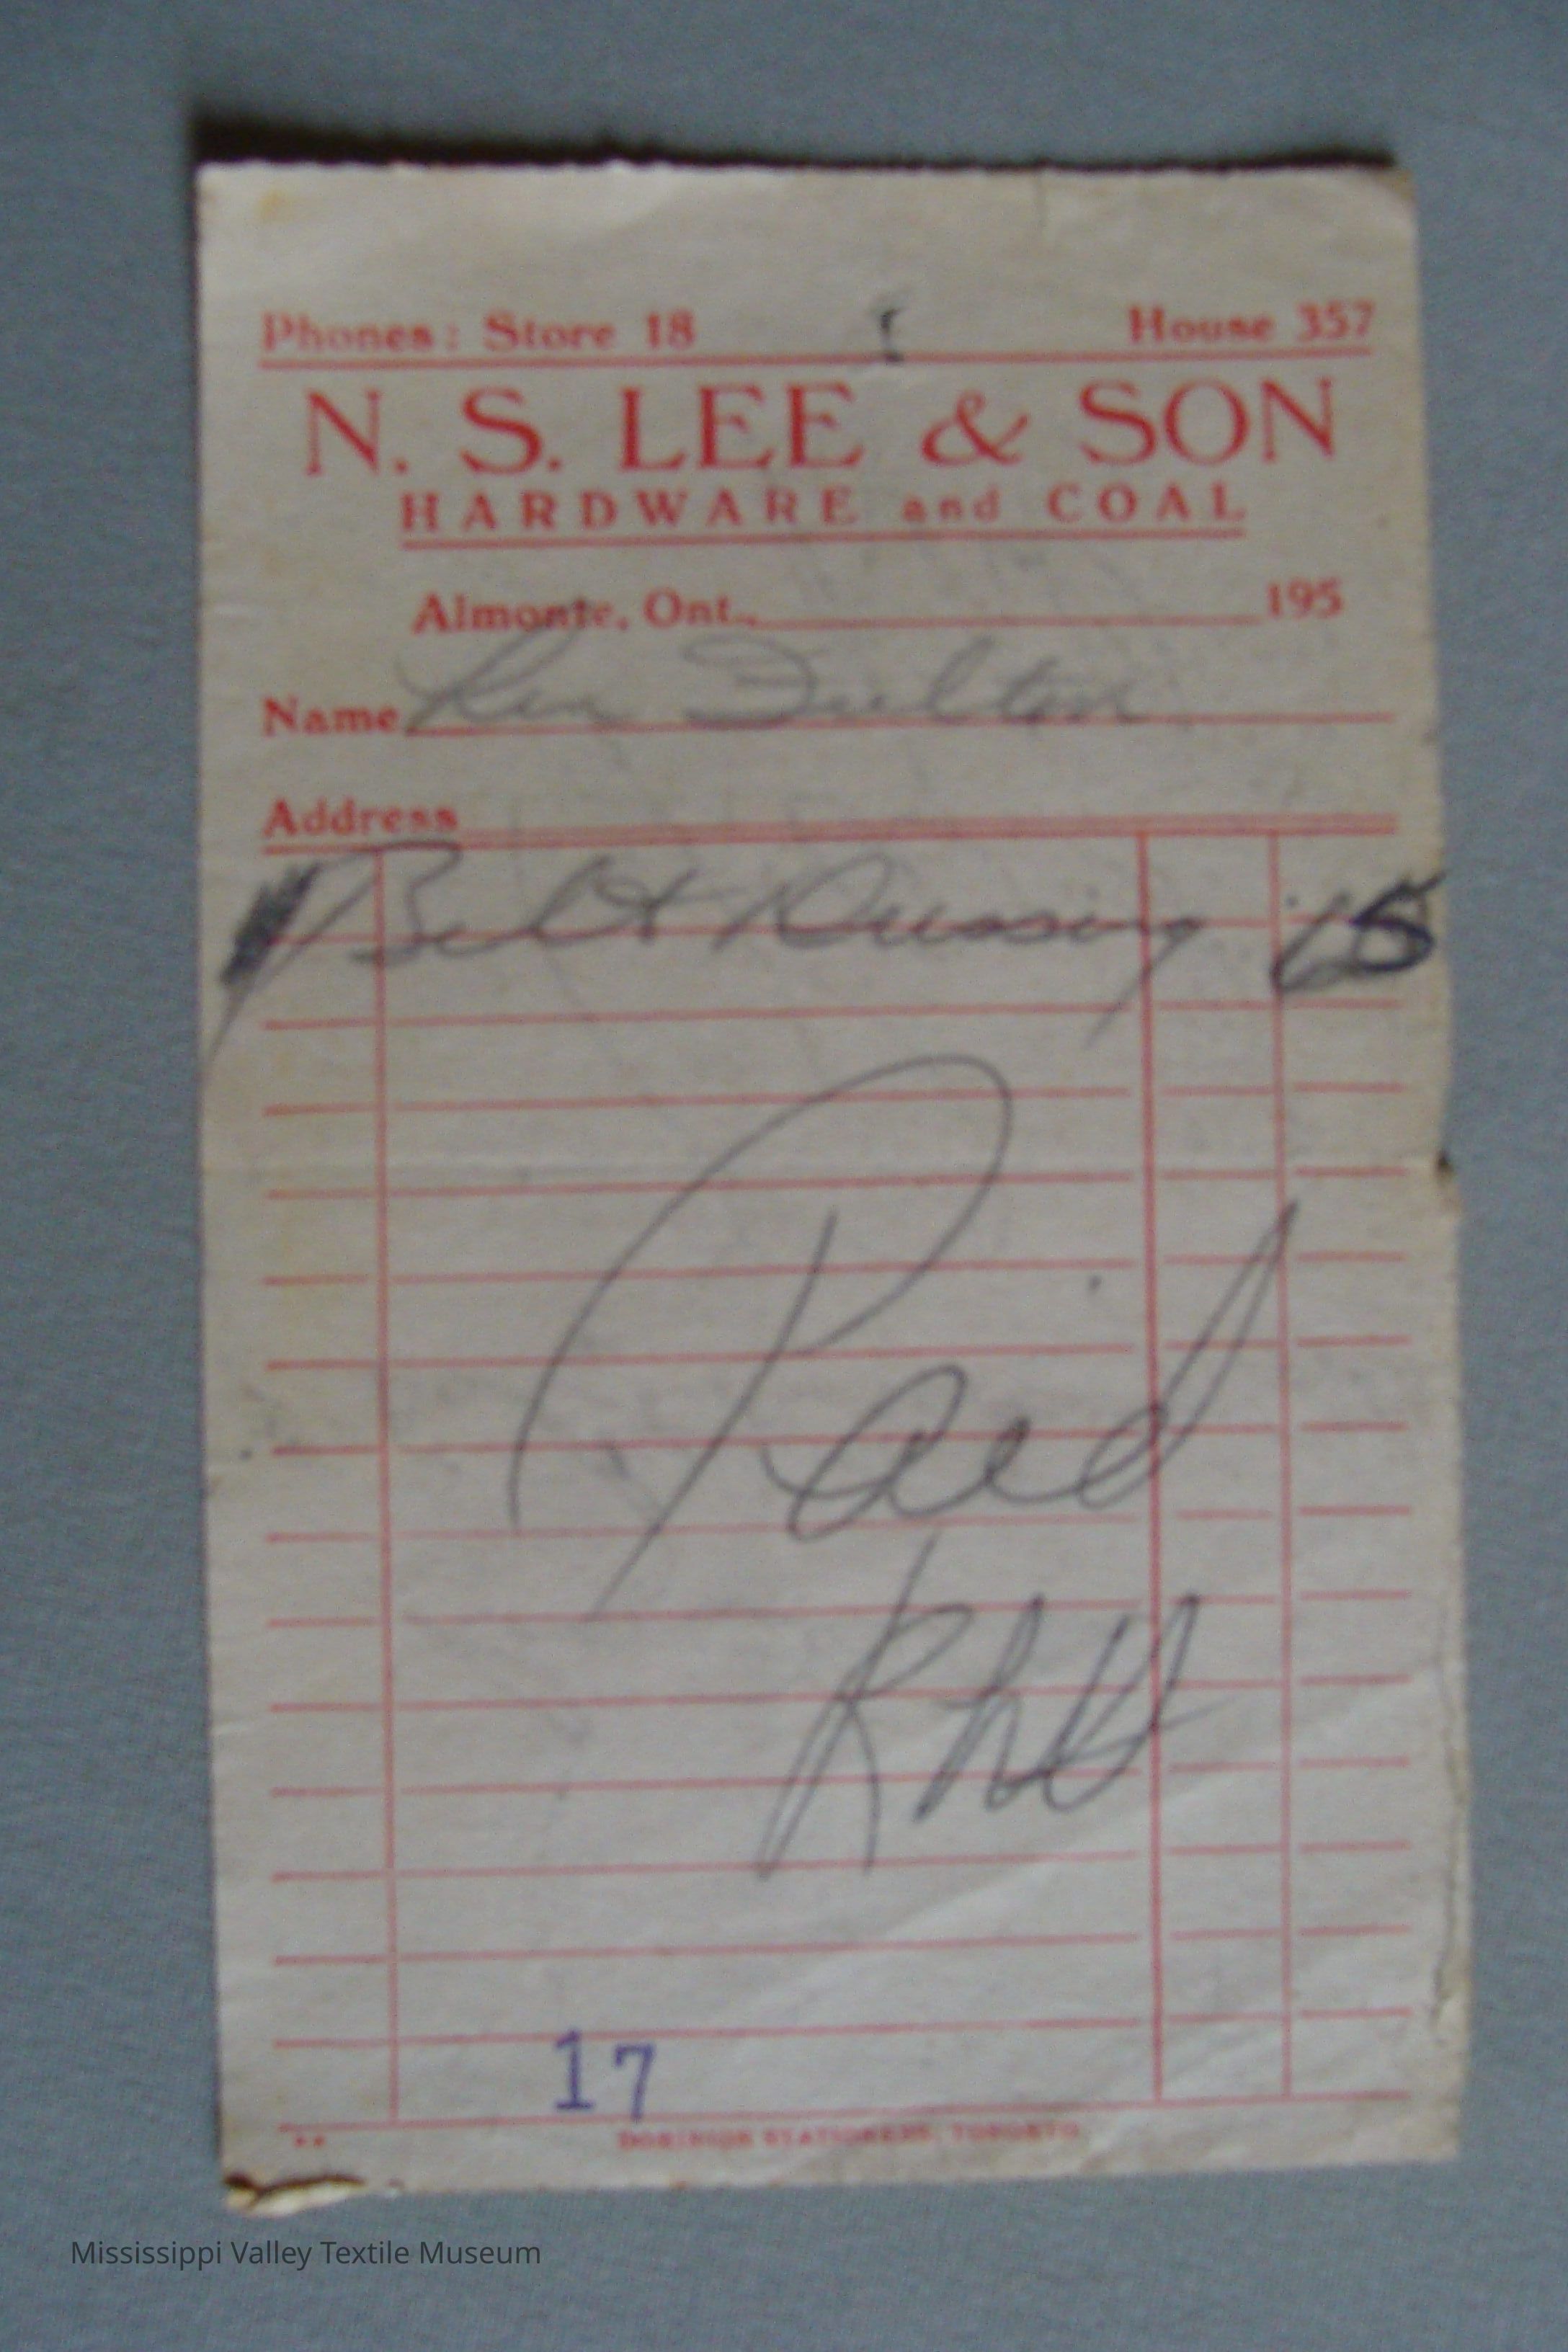 Phones: Store 18 House 357
N. S. LEE & SON
HARDWARE and COAL
Almonte, Ont., 195
Name Len Fulton
Address
Belt Dressing 15
Paid
17
DOMINION STATIONERS, TORONTO
Mississippi Valley Textile Museum